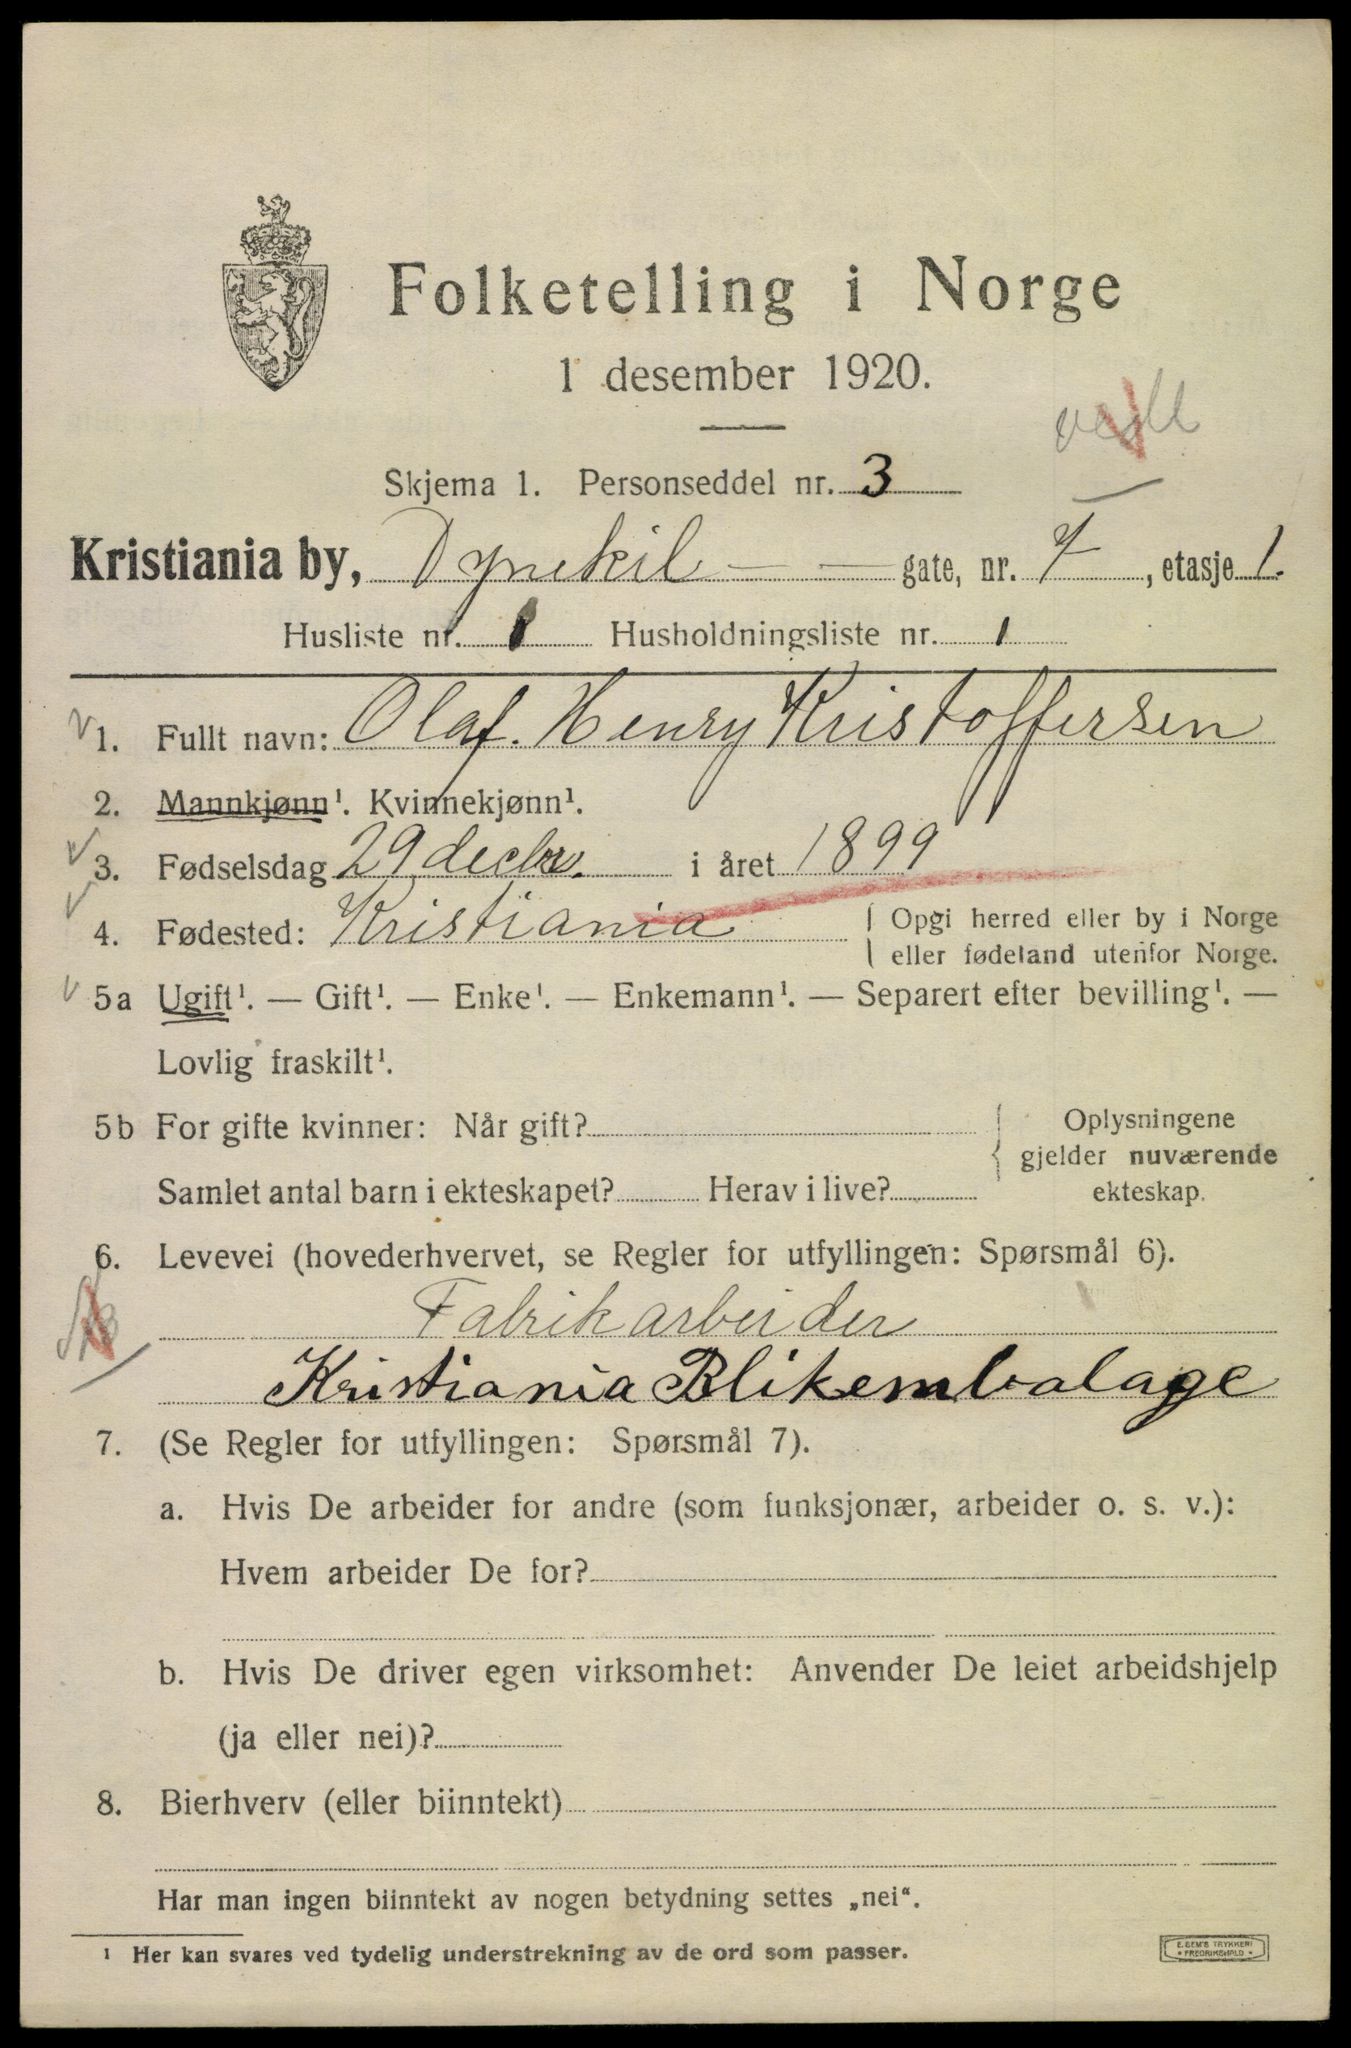 Folketelling i Norge
1 desember 1920.
Skjema 1. Personseddel nr. 3
Kristiania by, Dynekil — — gate, nr. 7, etasje 1.
Husliste nr. 1 Husholdningsliste nr. 1
1. Fullt navn: Olaf. Henry Kristoffersen
2. Mannkjønn¹. Kvinnekjønn¹.
3. Fødselsdag 29 decbr. i året 1899
4. Fødested: Kristiania { Opgi herred eller by i Norge
eller fødeland utenfor Norge.
5a Ugift¹. — Gift¹. — Enke¹. — Enkemann¹. — Separert efter bevilling¹. —
Lovlig fraskilt¹.
5b For gifte kvinner: Når gift? Oplysningene
gjelder nuværende
Samlet antal barn i ekteskapet? Herav i live? ekteskap.
6. Levevei (hovederhvervet, se Regler for utfyllingen: Spørsmål 6).
Fabrikarbeider
Kristiania Blikembalage
7. (Se Regler for utfyllingen: Spørsmål 7).
a. Hvis De arbeider for andre (som funksjonær, arbeider o. s. v.):
Hvem arbeider De for?
b. Hvis De driver egen virksomhet: Anvender De leiet arbeidshjelp
(ja eller nei)?
8. Bierhverv (eller biinntekt)
Har man ingen biinntekt av nogen betydning settes „nei“.
¹ Her kan svares ved tydelig understrekning av de ord som passer.
E. SEM'S TRYKKERI
FREDRIKSHALD